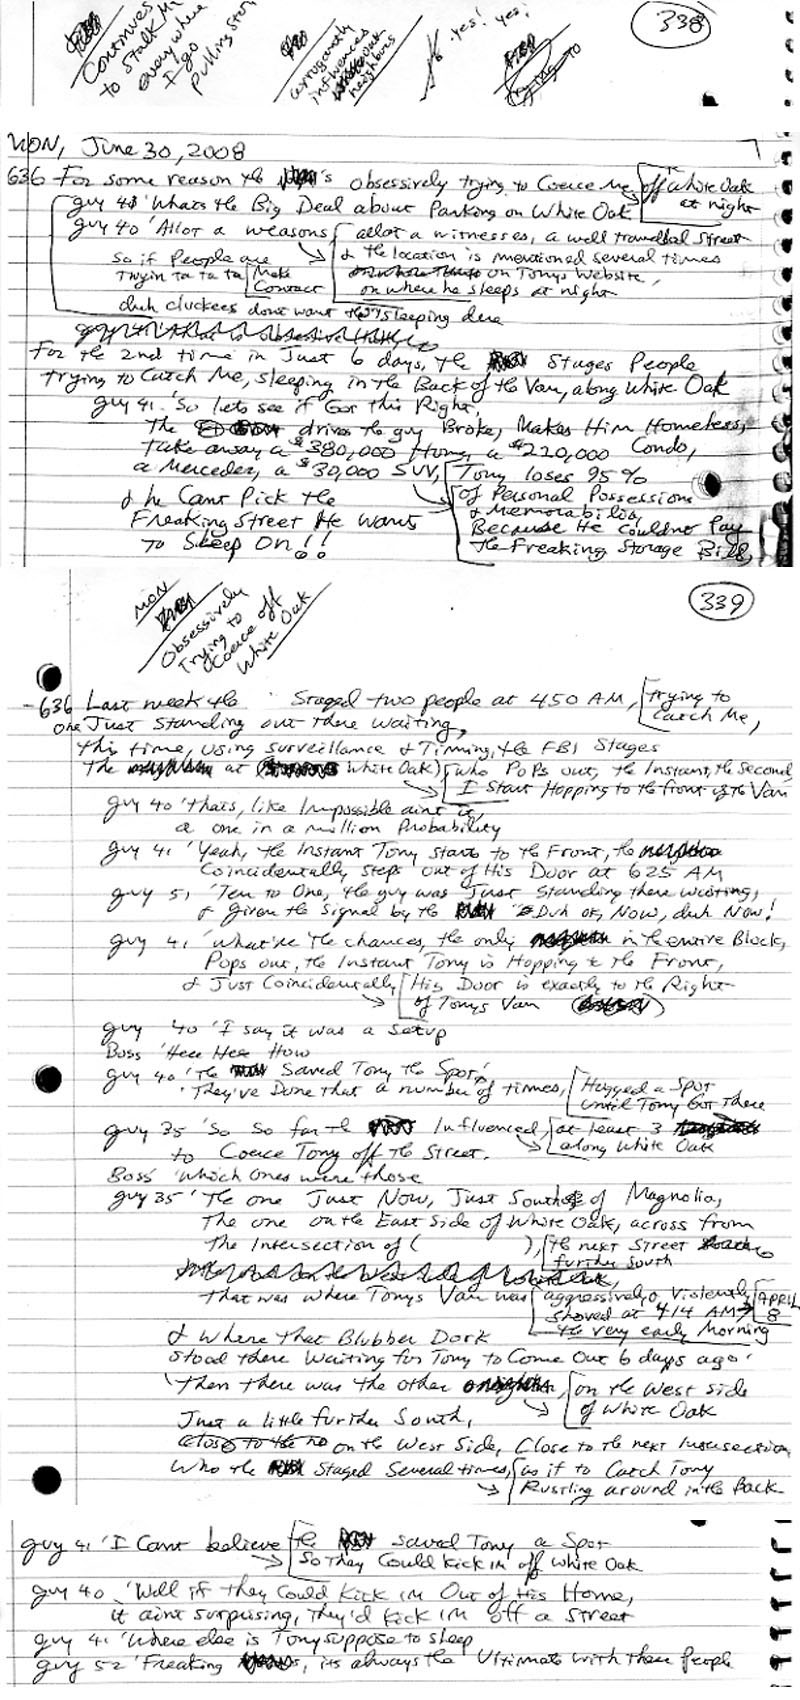 Continues
to Stalk Me
everywhere
I go
pulling
arrogantly
influences
neighbors
yes! yes!
trying to
338
MON, June 30, 2008
636 For some reason the 's obsessively trying to Coerce Me off White Oak
at night
guy 41 'Whats the Big Deal about Parking on White Oak
guy 40 'Allot a reasons allot a witnesses, a well travelled street
so if People are & the location is mentioned several times
tryin ta ta ta Make on Tonys Website,
Contact on where he sleeps at night
duh cluckees dont want sleeping dere
For the 2nd time in Just 6 days, the Stages People
trying to Catch Me, sleeping in the Back of the Van, along White Oak
guy 41 'So lets see if I Got this Right,
The drives the guy Broke, Makes Him Homeless,
take away a $380,000 Home, a $220,000 Condo,
a Mercedes, a $30,000 SUV, Tony loses 95%
& he Cant Pick the of Personal Possessions
Freaking Street He Wants & Memorabilia,
To Sleep On!! Because He Couldnt Pay
the Freaking Storage Bills,
MON
Obsessively
Trying to
Coerce off
White Oak
339
636 Last week the Staged two people at 450 AM, trying to
one Just Standing out there Waiting, Catch Me,
this time, using surveillance & Timing, the FBI Stages
The at White Oak) who PoPs out, the Instant, the second,
I Start Hopping to the front of the Van
guy 40 'thats, like Impossible aint it,
a one in a million Probability
guy 41 'Yeah, the Instant Tony starts to the Front, the
Coincidentally steps out of His Door at 625 AM
guy 51 'Ten to One, the guy was Just Standing there waiting,
& given the Signal by the Duh ok, Now, duh Now!
guy 41 'What're the chances, the only in the entire Block,
Pops out, the Instant Tony is Hopping to the Front,
& Just Coincidentally His Door is exactly to the Right
of Tonys Van
guy 40 'I say it was a setup
Boss 'Here Here How
guy 40 'The Saved Tony the Spot,
'They've Done that a number of times, Hugged a Spot
until Tony Got There
guy 35 'So So far the Influenced at least 3
to Coerce Tony off the Street. along White Oak
Boss 'Which ones were those
guy 35 'The one Just Now, Just South of Magnolia,
The one on the East Side of White Oak, across from
The Intersection of ( ), the next Street
further south
that was where Tonys Van was aggressively & Violently APRIL
shoved at 414 AM 8
the very early Morning
& Where that Blubber Dork
stood there Waiting for Tony to Come Out 6 days ago'
'Then there was the other on the West side
of White Oak
Just a little further South,
on the West Side, Close to the next Intersection
Who the Staged Several times, as if to Catch Tony
Rustling around in the Back
guy 41 'I Cant believe the saved Tony a Spot
so They Could Kick im off White Oak
guy 40 'Well if they Could Kick im Out of His Home,
it aint surprising, They'd Kick im off a Street
guy 41 'Where else is Tony suppose to sleep
guy 52 'Freaking s, its always the Ultimate with these People